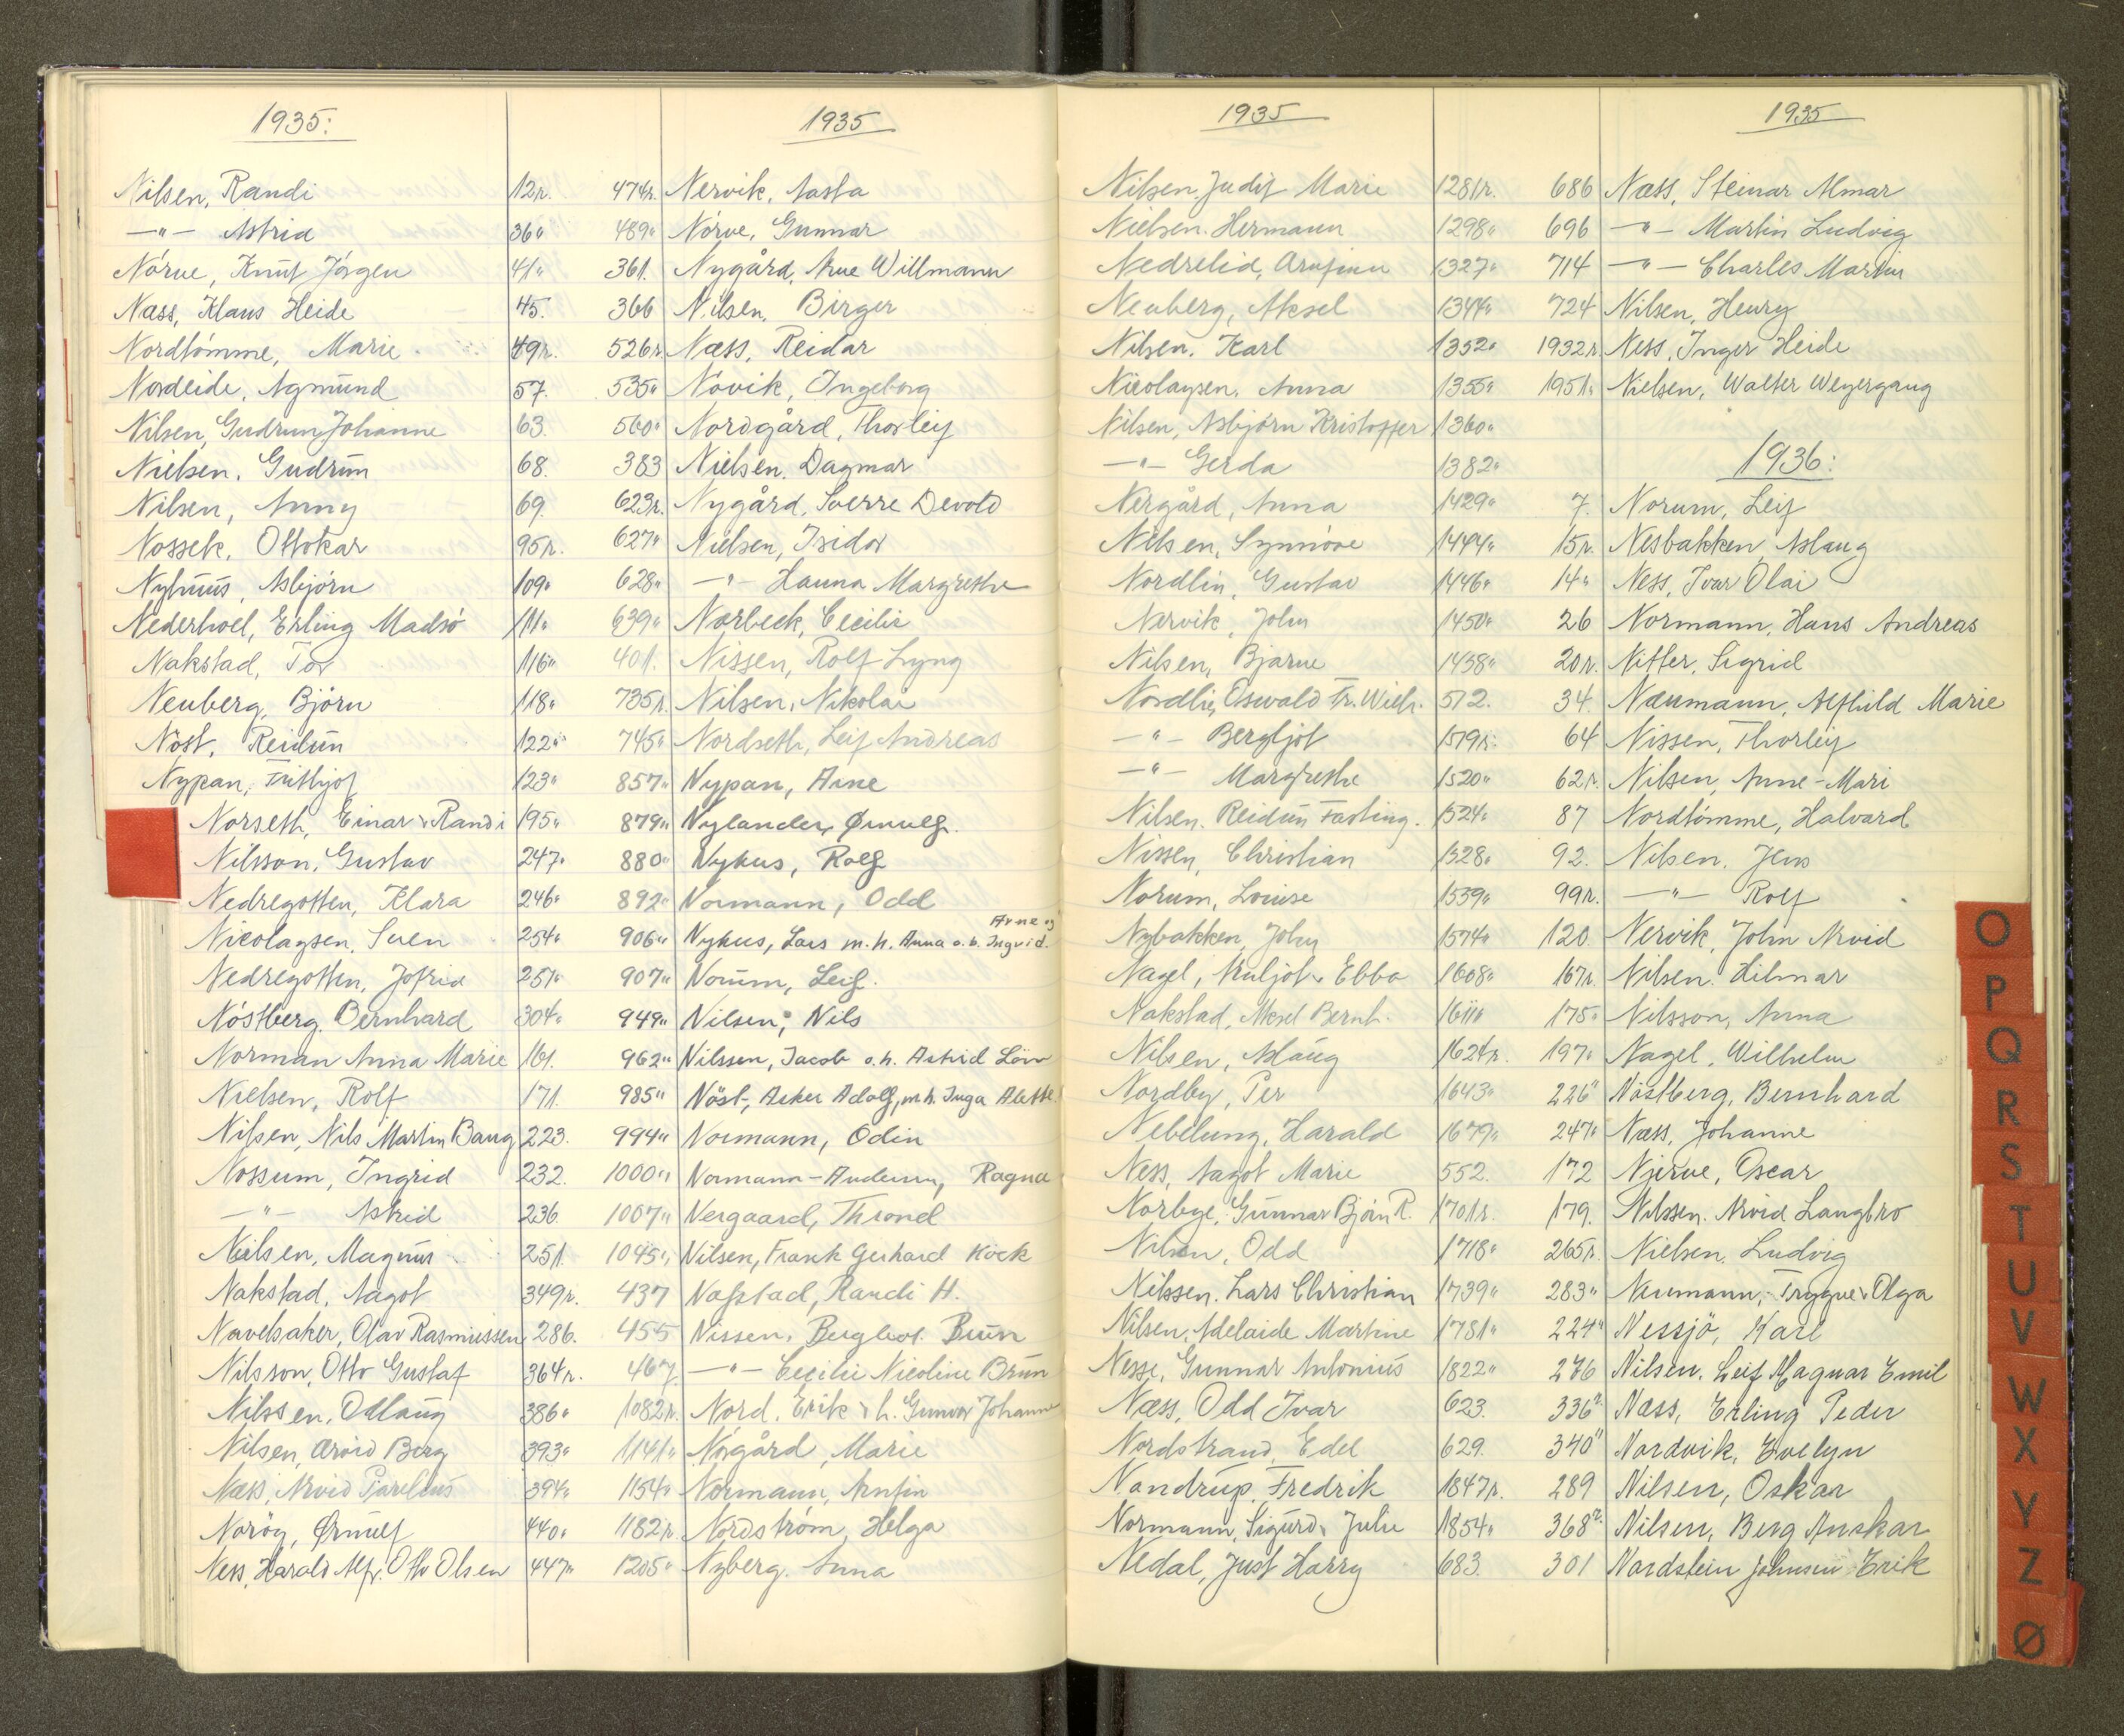 1935:
Nilsen, Randi 12r.
—"— Astrid 36"
Nörve, Knut Jörgen 41"
Næss, Klaus Heide 45.
Nordtömme, Marie 49r.
Nordeide, Agmund 57.
Nilsen, Gudrun Johanne 63.
Nielsen, Gudrun 68.
Nilsen, Anny 69.
Nossek, Ottokar 95r.
Nyhuus, Asbjörn 109"
Nederhoel, Erling Madsö 111"
Nakstad, Tor 116"
Neuberg, Björn 118"
Nöst, Reidun 122"
Nypan, Frithjof 123"
Norseth, Einar & Randi 195"
Nilsson, Gustav 247"
Nedregotten, Klara 246"
Nicolaysen, Sven 254"
Nedregotten, Jofrid 251"
Nöstberg, Bernhard 304"
Norman Anna Marie 161.
Nielsen, Rolf 171.
Nilsen, Nils Martin Bang 223.
Nossum, Ingrid 232.
—"— Astrid 236.
Nielsen, Magnus 251.
Nakstad, Aagot 349r.
Navelsaker, Olav Rasmussen 286.
Nilsson, Otto Gustaf 364r.
Nilssen, Odlaug 386"
Nilsen, Arvid Berg 393"
Næss, Arvid 394"
Noröy, Ørnulf 440"
Ness, Harald Alfr. Otto Olsen 447"
1935
474r. Nervik, Aasta
489" Nörve, Gunnar
361. Nygård, Arne Willmann
366 Nilsen, Birger
526r. Næss, Reidar
535" Növik, Ingeborg
560" Nordgård, Thorleif
383 Nielsen, Dagmar
623r. Nygård, Sverre Devold
627" Nielsen, Isidor
628" —"— Hanna Margrethe
639" Nørbeck, Cecilie
401. Nissen, Rolf Lyng
735r. Nilsen, Nikolai
745" Nordseth, Leif Andreas
857" Nypan, Arne
879" Nylander, Ørnulf.
880" Nyhus, Rolf
892" Normann, Odd
906" Nyhus, Lars m.h. Anna o.b. Arne og Ingrid.
907" Norum, Leif.
949" Nilsen, Nils
962" Nilssen, Jacob o.h. Astrid
985" Nöst, Asker Adolf, m.h. Inga Alette
994" Normann, Odin
1000" Normann-Andersen, Ragna
1007" Nergaard, Thrond
1045" Nilsen, Frank Gerhard Kock
437 Nafstad, Randi H.
455 Nissen, Bergliot Brun
467 —"— Cecilie Nicoline Brun
1082r. Nord, Erik & h. Gunvor Johanne
1141" Nögård, Marie
1154" Normann, Arnfin
1182r. Nordström, Helga
1205" Nyberg, Anna
1935
Nilsen, Judit Marie 1281r.
Nielsen, Hermann 1298"
Nedrelid, Arnfinn 1327"
Neuberg, Aksel 1344"
Nilsen, Karl 1352"
Nicolaysen, Anna 1355"
Nilsen, Asbjørn Kristoffer 1360"
—"— Gerda 1382"
Nergård, Anna 1429"
Nilsen, Synnöve 1444"
Nordlin, Gustav 1446"
Nervik, John 1450"
Nilsen, Bjarne 1458"
Nordlie, Oswald Fr. Wilh. 512.
—"— Bergljot 1519r.
—"— Margrethe 1520"
Nilsen, Reidun Fasting. 1524"
Nissen, Christian 1528"
Norum, Louise 1539"
Nybakken, John 1574"
Nagel, Ebba 1608"
Nakstad, Aksel Bernh. 1611"
Nilsen, Aslaug 1624r.
Nordby, Per 1643"
Nebelung, Harald 1679"
Ness, Aagot Marie 552.
Norbye, Gunnar Björn R. 1701r.
Nilsen, Odd 1718"
Nilssen, Lars Christian 1739"
Nilsen, Adelaide Martine 1781"
Nesse, Gunnar Antonius 1822"
Næss, Odd Ivar 623.
Nordstrand, Edel 629.
Nandrup, Fredrik 1847r.
Normann, Sigurd & Julie 1854"
Nedal, Just Harry 683.
1935
686 Næss, Steinar Almar
696 —"— Martin Ludvig
714 —"— Charles Martin
724 Nilsen, Henry
1932r. Ness, Inger Heide
1951" Nielsen, Walter Weyergang
1936:
7. Norum, Leif
15r. Nesbakken, Aslaug
14" Ness, Ivar Olai
26 Normann, Hans Andreas
20r. Nitter, Sigrid
34 Naumann, Alfhild Marie
64 Nissen, Thorleif
62r. Nilsen, Anne-Mari
87 Nordtömme, Halvard
92. Nilsen, Jens
99r. —"— Rolf
120 Nervik, John Arvid
167r. Nilsen, Hilmar
175" Nilsson, Anna
197" Nagel, Wilhelm
226" Nöstberg, Bernhard
247" Næss, Johanne
172 Njerve, Oscar
179. Nilssen, Arvid Langbro
265r. Nielsen, Ludvig
283" Neumann, Trygve & Olga
224" Nessjö, Karl
276 Nilsen, Leif Magnar Emil
336r. Næss, Erling Peder
340" Nordvik, Evelyn
289 Nilsen, Oskar
368r. Nilsen, Berg Anskar
301 Nordstein Johnsen Erik
O
P
Q
R
S
T
U
V
W
X
Y
Z
Ø